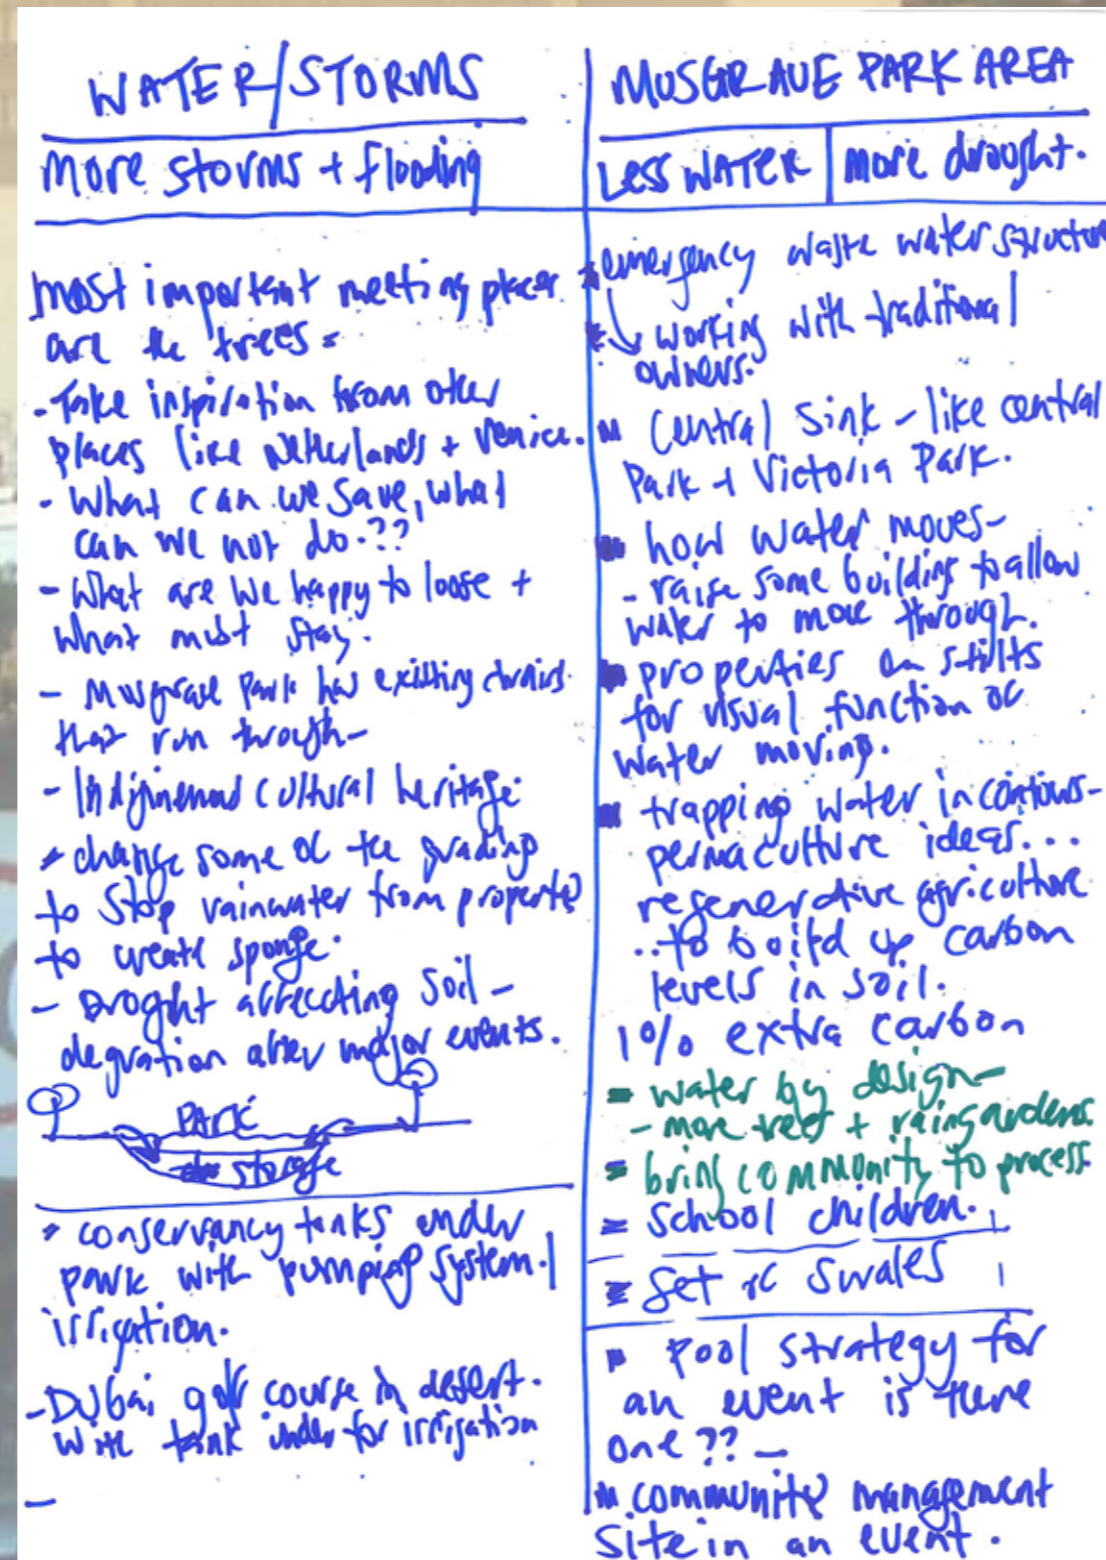 WATER/STORMS
More storms + flooding
most important meeting places
are the trees =
- Take inspiration from other
places like Netherlands + Venice.
- What can we save, what
can we not do.??
- What are we happy to loose +
what must stay.
- Musgrave Park has existing drains
that run through-
- cultural heritage.
- change some of the grading
to stop rainwater from
to create sponge.
- Droght affeccting soil -
degration after major events.
PARK
storage
- conservancy tanks under
park with pumping system. |
irrigation.
- Dubai golf course in desert.
with tank under for irrigation
-
MUSGRAVE PARK AREA
Less WATER | more drought.
emergency waste water structure
working with traditional
owners.
Central Sink - like central
Park + Victoria Park.
how water moves-
- raise some building to allow
water to move through.
properties on stilts
for visual function of
water moving.
trapping water in contours-
permaculture ideas...
regenerative agriculture
..to build up carbon
levels in soil.
1% extra carbon
- water by design-
- more trees + raingardens.
- bring community to process.
= school children.
Set of swales
Pool strategy for
an event is there
one?? -
community management
Site in an event.